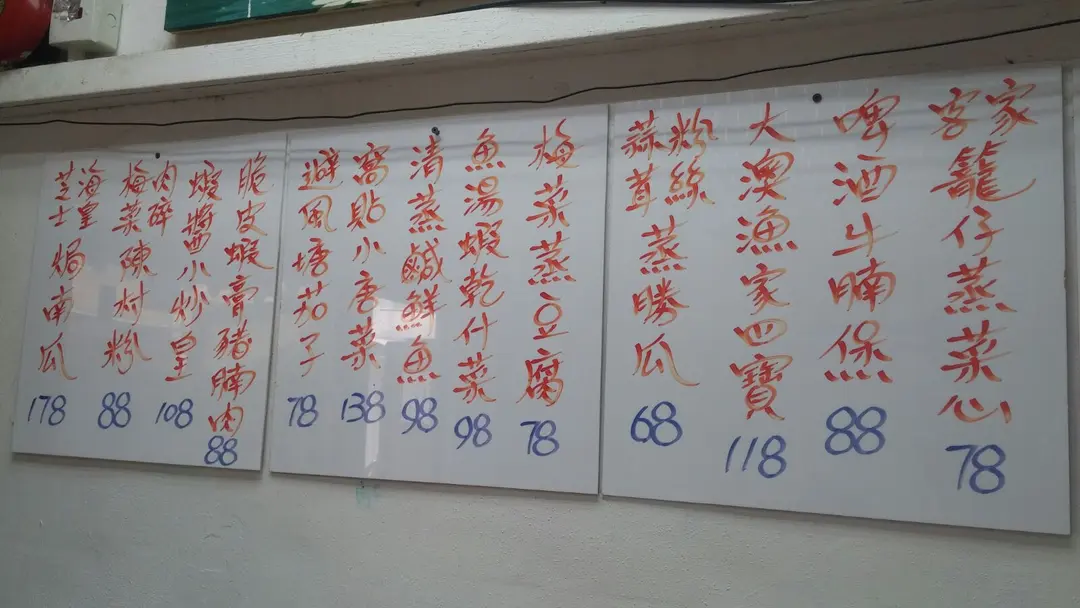 客家籠仔蒸菜心
78
啤酒牛腩煲
88
大澳漁家四寶
118
粉絲蒜茸蒸勝瓜
68
梅菜蒸豆腐
78
魚湯蝦乾什菜
98
清蒸鹹鮮魚
98
窩貼小唐菜
138
避風塘茄子
78
脆皮蝦膏豬腩肉
88
蝦醬小炒皇
108
肉碎梅菜陳村粉
88
海皇芝士焗南瓜
178